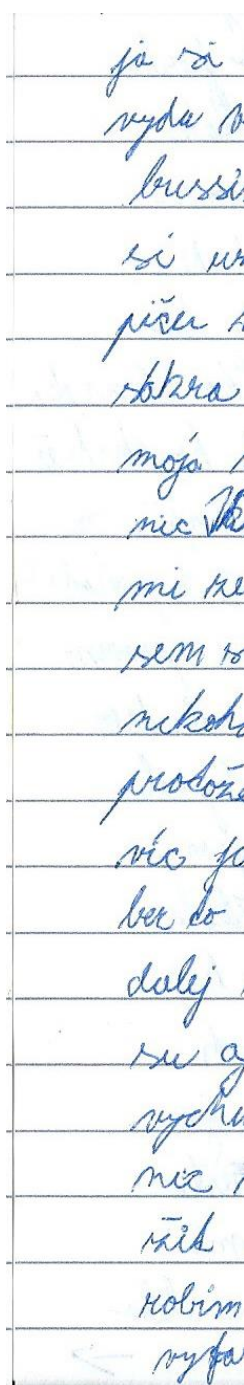 ja si
vydu v
bussi
si us
pičeu s
sakra
moja
nic
mi ze
sem s
nekoho
protože
víc ja
ber to
dalej
su a
vychu
nic
žit
robim
vyfa